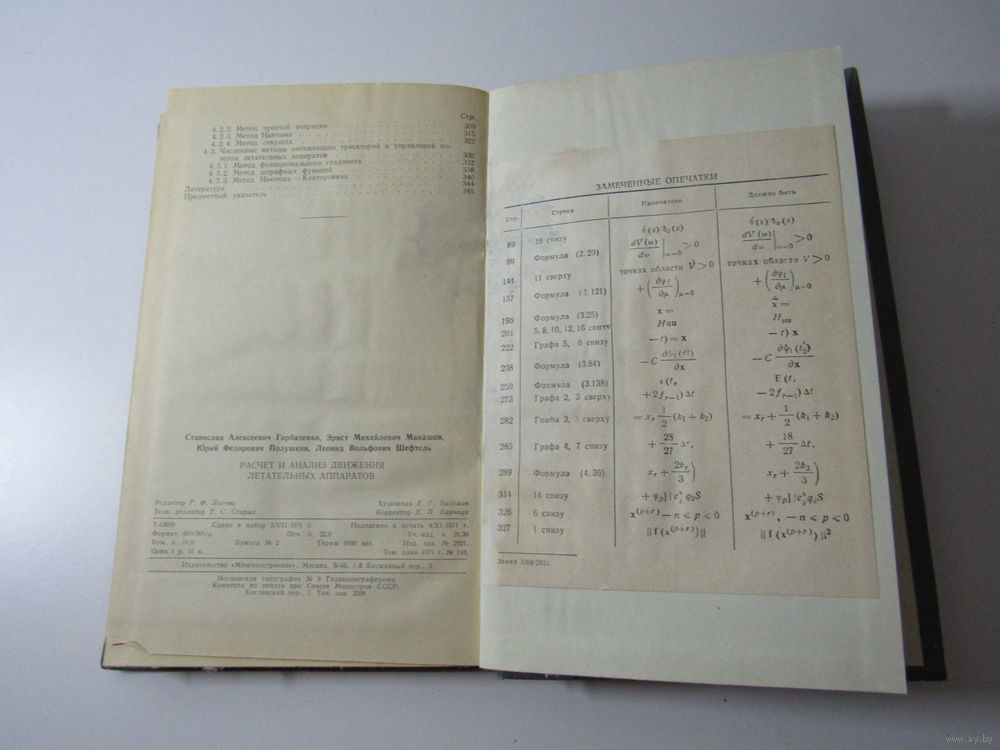 Стр.
4.2.2. Метод простой итерации 309
4.2.3. Метод Ньютона 315
4.2.4. Метод секущих 322
4.3. Численные методы оптимизации траекторий и управлений по-
летом летательных аппаратов 332
4.3.1. Метод функционального градиента 332
4.3.2. Метод штрафных функций 338
4.3.3. Метод Ньютона—Канторовича 340
Литература 344
Предметный указатель 345
Станислав Алексеевич Горбатенко, Эрнст Михайлович Макашов,
Юрий Федорович Полушкин, Леонид Вольфович Шефтель
РАСЧЕТ И АНАЛИЗ ДВИЖЕНИЯ
ЛЕТАТЕЛЬНЫХ АППАРАТОВ
Редактор Г. Ф. Лосева Художник Е. Г. Байтман
Техн. редактор Г. С. Старых Корректор Е. П. Карнаух
Сдано в набор 5/VII-1971 г. Подписано к печати 4/XI-1971 г.
Формат Печ. л. 22,0 Уч.-изд. л. 21,36
Бум. л. 11,0 Бумага № 2 Тираж 6000 экз. Изд. зак. 2921.
Цена 1 р. 31 к. Тем. план 1971 г. № 110.
Издательство «Машиностроение», Москва, Б-66, 1-й Басманный пер., 3.
Московская типография № 8 Главполиграфпрома
Комитета по печати при Совете Министров СССР.
Хохловский пер., 7. Тип. зак. 3398
ЗАМЕЧЕННЫЕ ОПЕЧАТКИ
Стр. Строка Напечатано Должно быть
89 19 снизу
99 Формула (2.29) dV(ω)/dω |ω=0 >0 dV(ω)/dω |ω=0 >0
144 11 сверху точках области V̇>0 точках области V>0
157 Формула (2.121) +(∂φ/∂μ)μ=0 +(∂φ/∂μ)μ=0
196 Формула (3.25) x= x=
201 5, 8, 10, 12, 16 снизу Нии
222 Графа 5, 6 снизу —t)=x —t) x
238 Формула (3.84)
250 Формула (3.138) E(t,
273 Графа 2, 3 сверху +2fr−1) Δt —2fr−1) Δt
282 Графа 3, сверху =xr+1/2(k1+k2) =xr+1/2(k1+k2)
285 Графа 4, 7 снизу +28/27 Δt, +18/27 Δt,
289 Формула (4,36) xr+2kr/3) xr+2k2/3)
314 14 снизу
326 6 снизу x(p+r)—n<p<0 x(p+r), —n<p<0
327 1 снизу ||f(x(p+r))|| ||f(x(p+r))||²
Заказ 3398/2921
www.ay.by